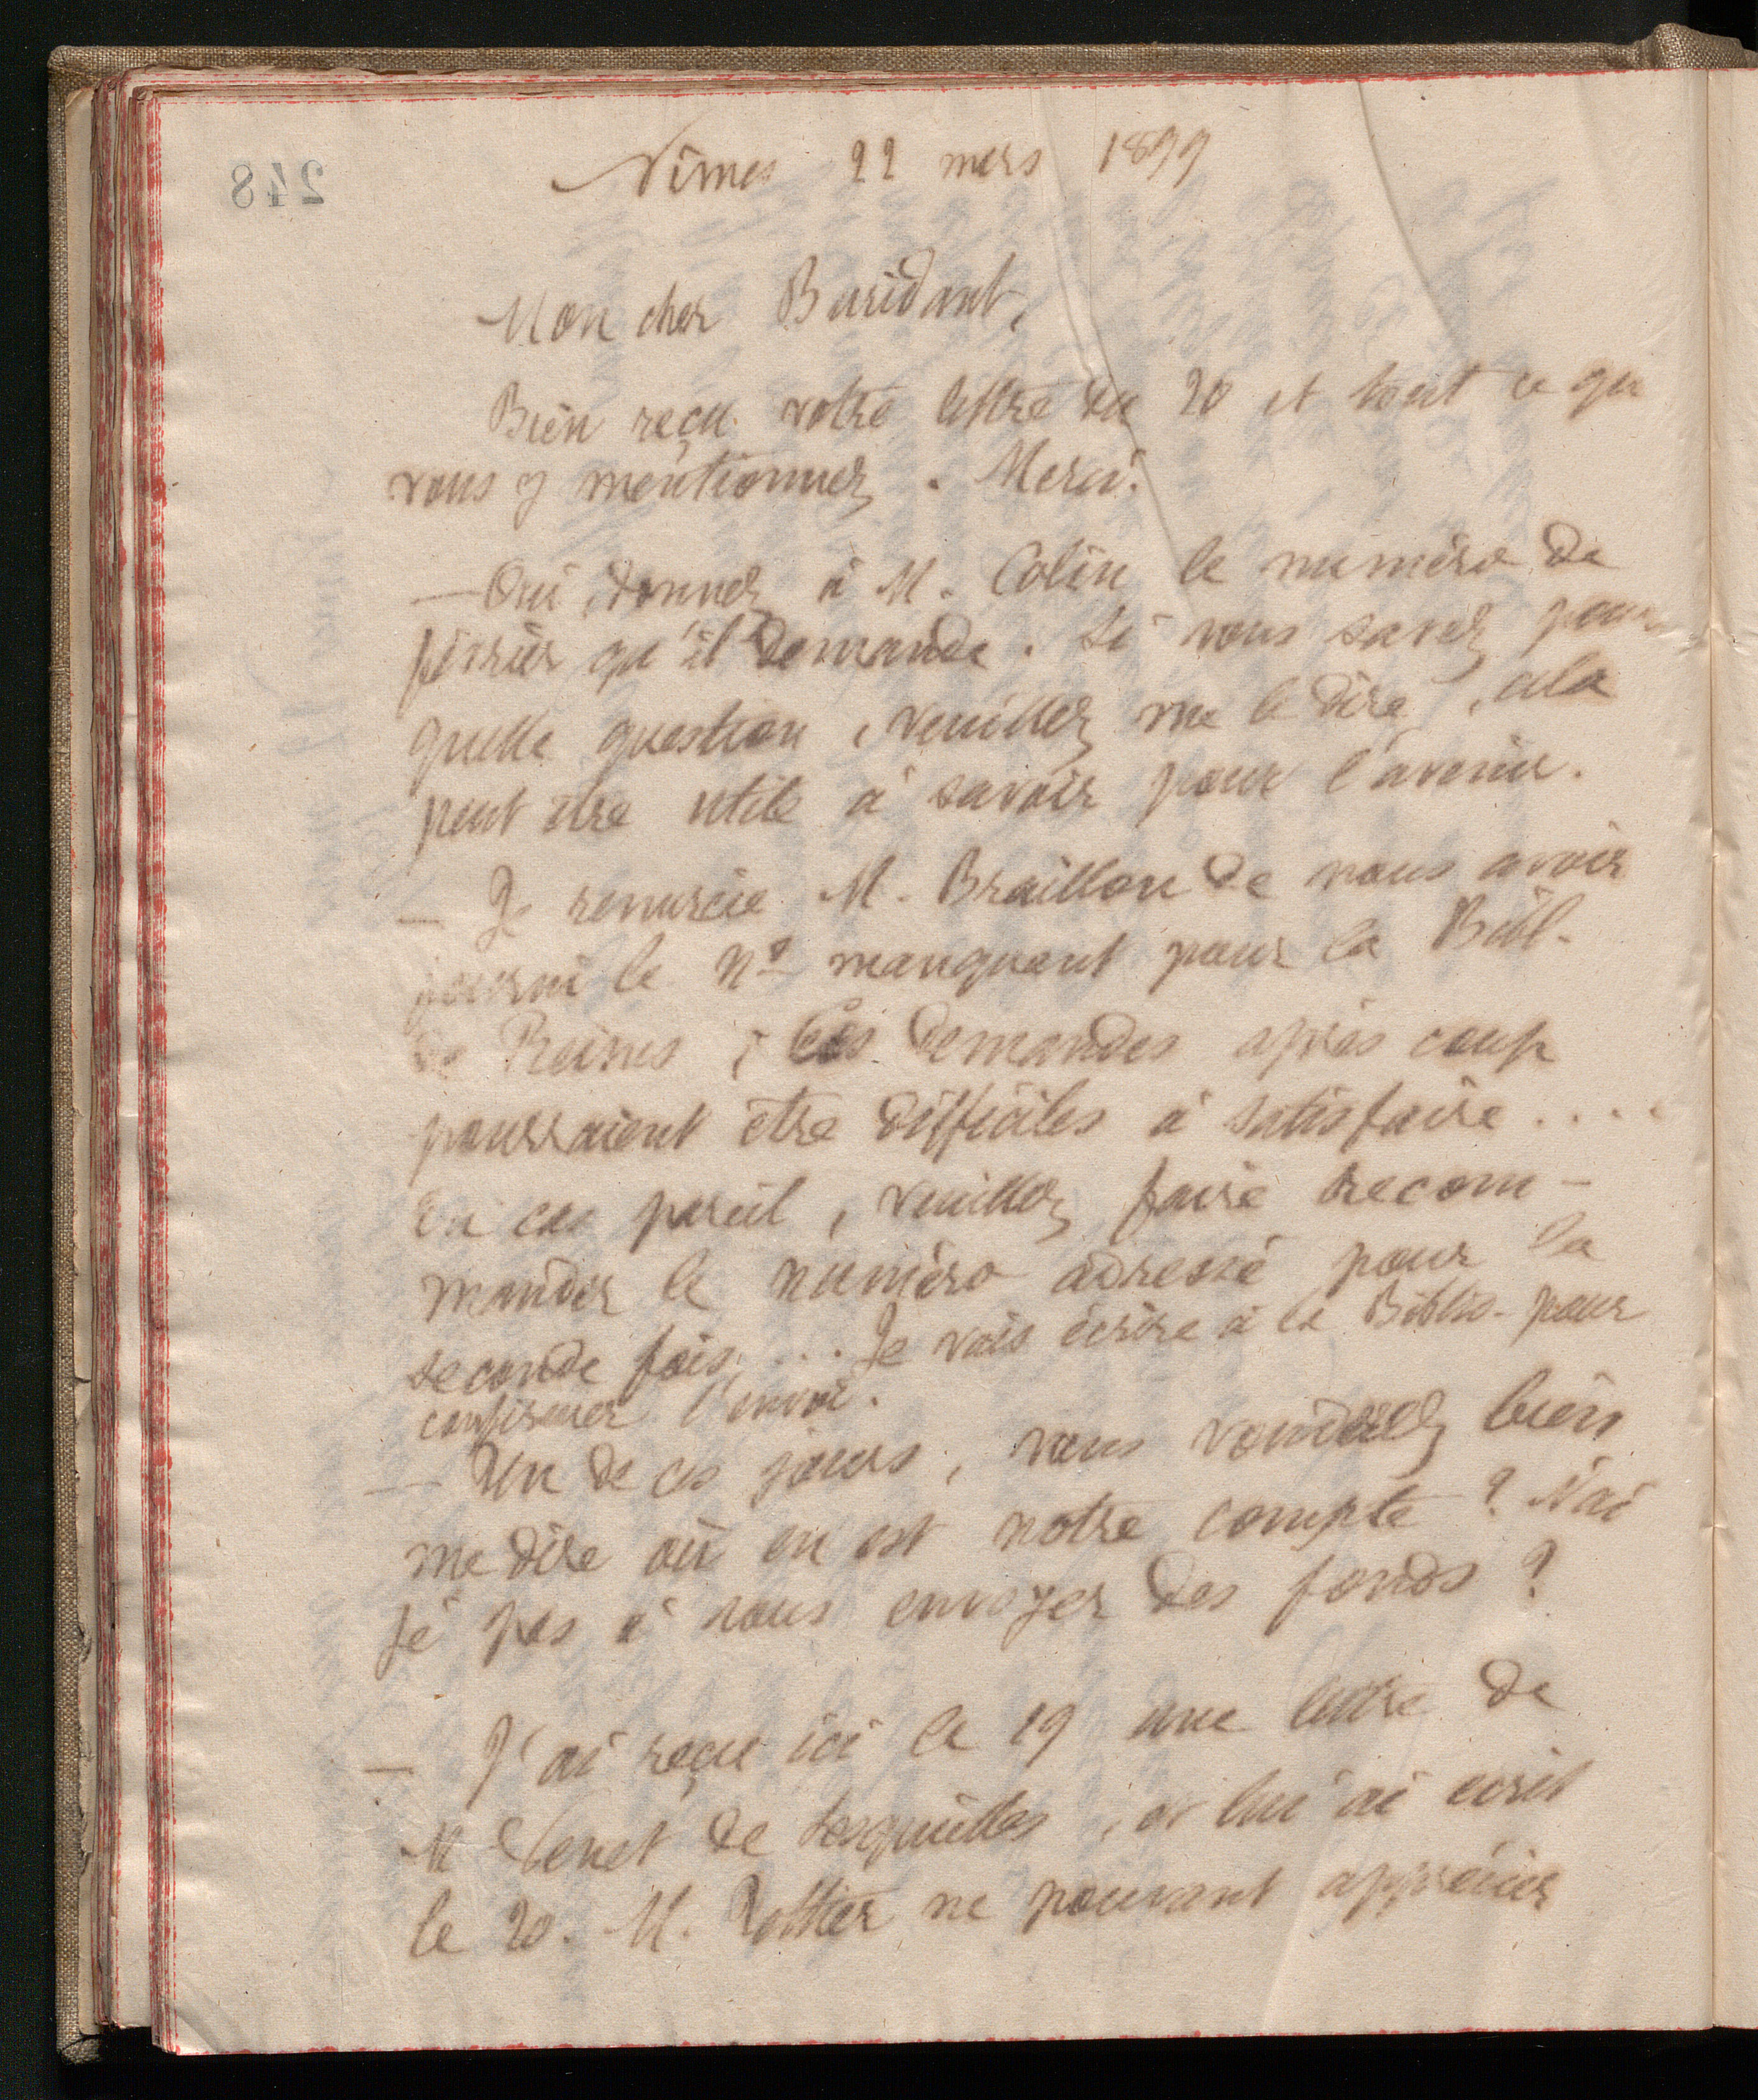 248
Nîmes 22 mars 1899
Mon cher Buridant,
Bien reçu votre lettre du 20 et tout ce que
vous y mentionnez. Merci.
— Oui, donnez à M. Colin le numéro de
février qu'il demande. Si vous savez pour
quelle question, veuillez me le dire, cela
peut être utile à savoir pour l'avenir.
— Je remercie M. Braillon de nous avoir
fourni le Nº manquant pour la Bibl.
de Reims ; Ces demandes après coup
pourraient être difficiles à satisfaire....
En cas pareil, veuillez faire recom-
mander le numéro adressé pour la
seconde fois, ... Je vais écrire à la Biblio. pour
confirmer l'envoi.
— Un de ces jours, vous voudrez bien
me dire où en est notre compte ? N'ai
je pas à vous envoyer des fonds ?
— J'ai reçu ici le 19 une lettre de
M. de Lesquielles, et lui ai écrit
le 20. M. ne pouvant apprécier